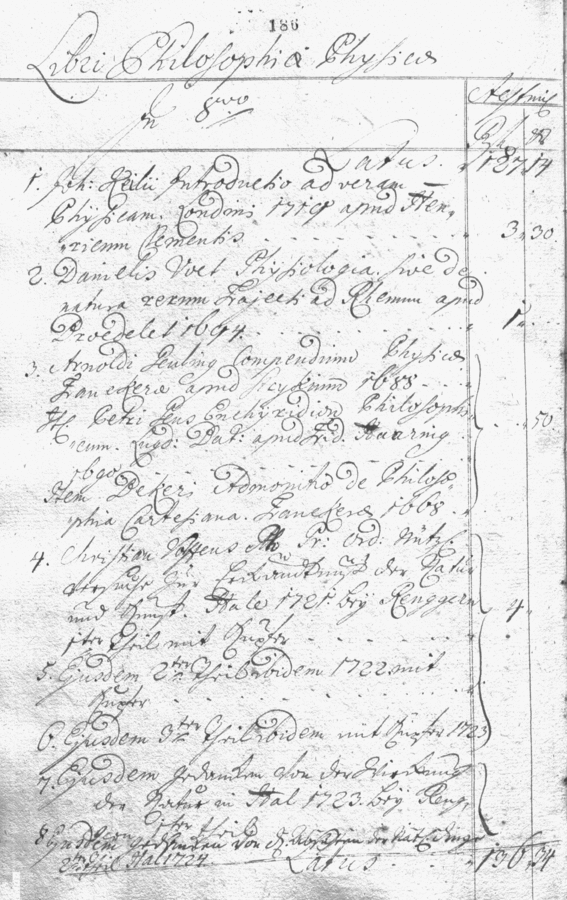 186
Libri Philosophiæ Physicæ
In 8vo
Aestim
Latus 187 14
1. Joh: Keilii Introductio ad veram
Physicam. Londoni 1719 apud Hen,
ricum Clementis 3 30
2. Danielis Voet Physiologia. sive de
natura rerum Trajecti ad Rhenum apud
1694. 1
3. Arnoldi Geuling Compendium Physicæ
Franekeræ apud 1688
It: Petri Enchyridion Philosophi
cum. Lugd: Bat: apud Frid. Haaring 50
1690
Item Admonitio de Philoso
phia Cartesiana. Franekeræ 1668
4. Christian Wolffens Ord: Nützl.
Versuche Zur Erkandtnuß der Natur
und Kunst. Hale 1721. bey Renggern 4
1ter Theil mit Kupfer
5. Ejusdem 2ter Theil ibidem 1722 mit
Kupfer
6. Ejusdem 3ter Theil ibidem mit Kupfer 1723
7. Ejusdem Gedanken von der Wirkung
der Natur in Hal 1723. bey Reng,
1ter Theil
8 Ejusdem Gedanken von d. Absichten der Natürl. Dinge
2ter Theil Hal 1724.
Latus 196 34